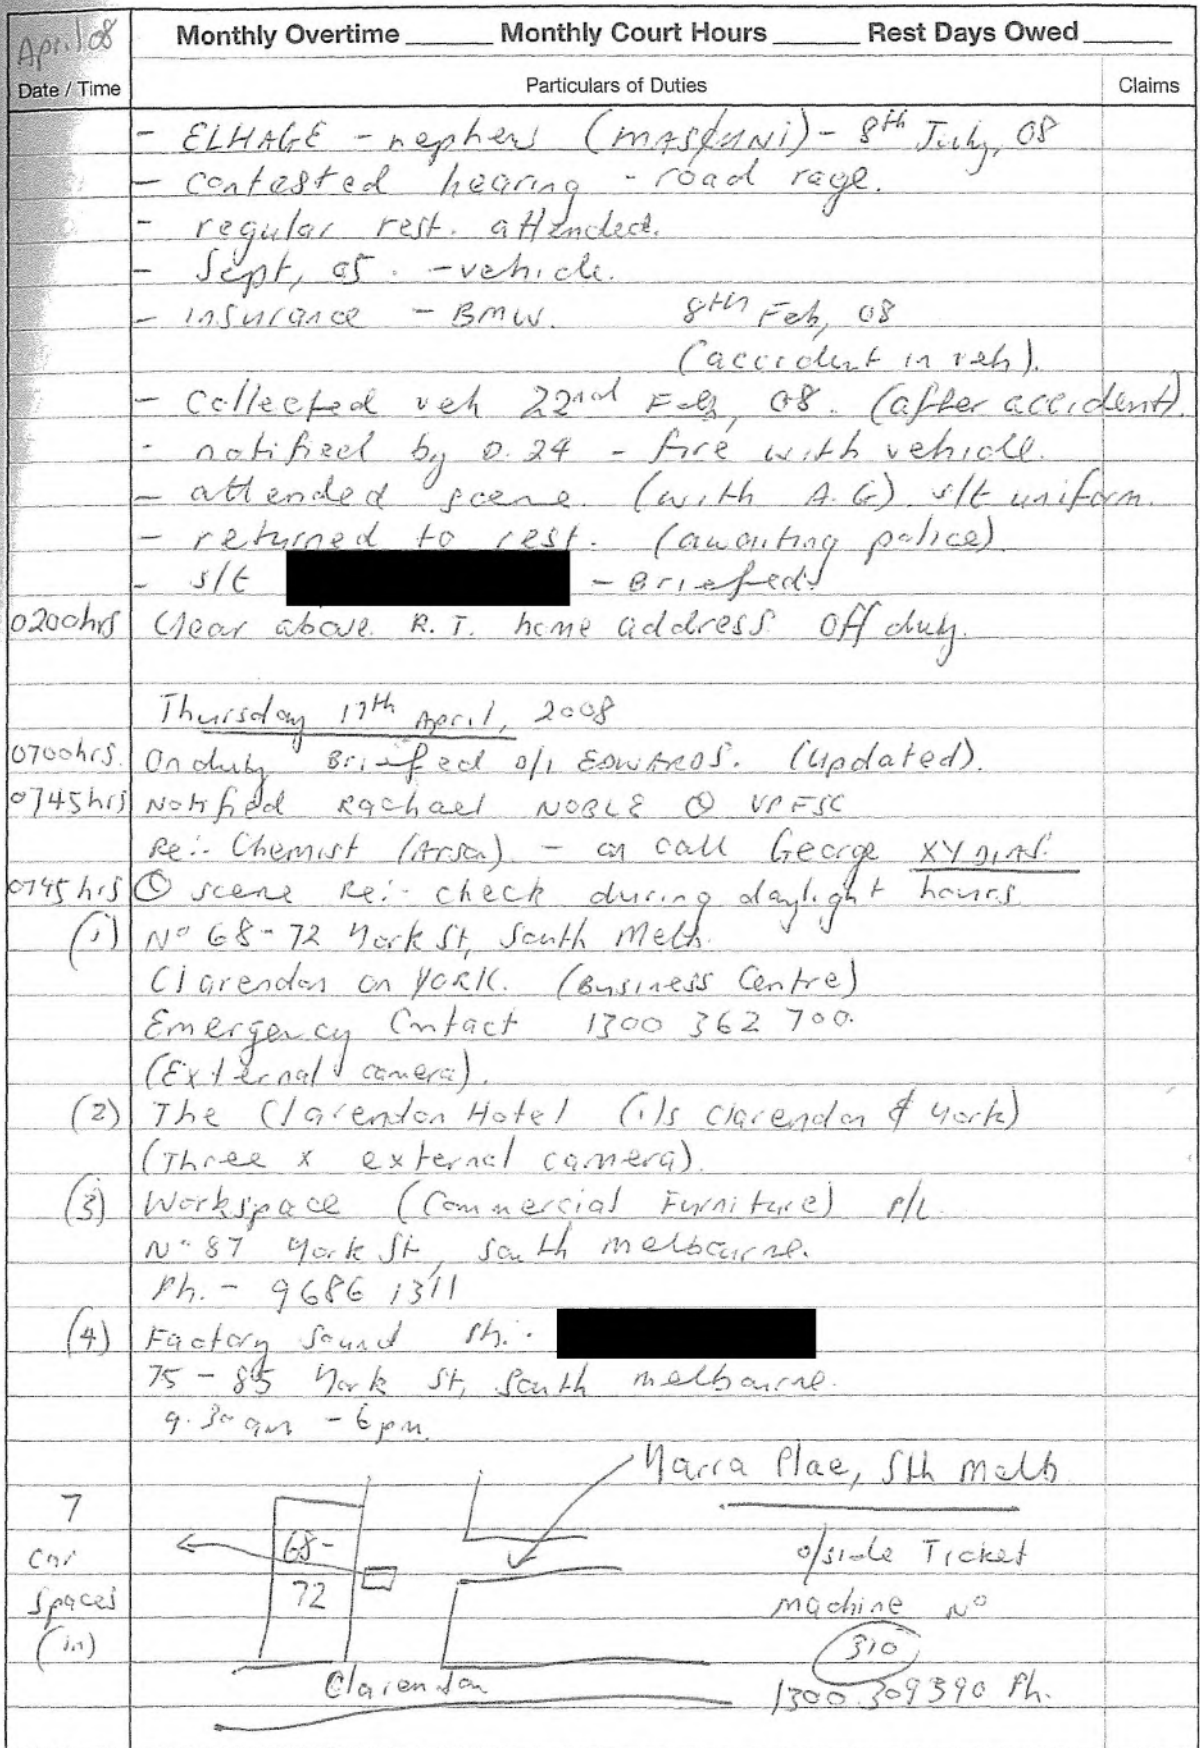 April 08
Monthly Overtime Monthly Court Hours Rest Days Owed
Date / Time Particulars of Duties Claims
- ELHAGE - nephew - 8th July, 08
- contested hearing - road rage.
- regular rest. attended.
- Sept, 05. - vehicle.
- insurance - BMW. 8th Feb, 08
(accident in veh).
- Collected veh 22nd Feb, 08. (after accident)
- notified by 0.24 - fire with vehicle.
- attended scene. (with A.G) s/t uniform.
- returned to rest. (awaiting police)
- s/t - Briefed
0200hrs Clear above. R.T. home address. Off duty.
Thursday 17th April, 2008
0700hrs. On duty Briefed D/I EDWARDS. (Updated).
0745hrs Notified Rachael NOBLE @ VPFSC
Re:- Chemist (Arson) - on call George
0745hrs @ scene Re:- check during daylight hours
(1) No 68-72 York St, South Melb.
Clarendon on YORK. (Business Centre)
Emergency Contact 1300 362 700.
(External camera).
(2) The Clarendon Hotel (i/s Clarendon & York)
(Three x external camera).
(3) Workspace (Commercial Furniture) P/L
No 87 York St, South Melbourne.
Ph. - 9686 1311
(4) Factory Sound Ph.-
75 - 85 York St, South Melbourne.
9.30am - 6pm.
Yarra Plae, Sth Melb
7
Car
Spaces
(in)
68-
72
o/side Ticket
machine No
310
Clarendon
1300.309390 Ph.